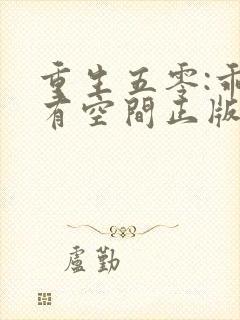 重生五零:乖
有空間正版
盧勤